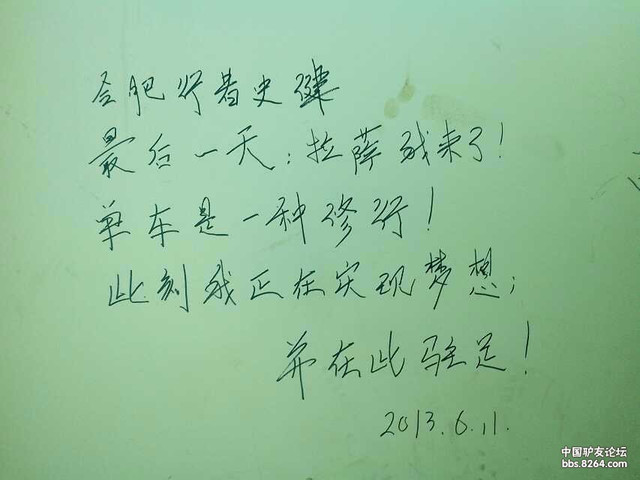 合肥行者史健
最后一天:拉萨我来了!
单车是一种修行!
此刻我正在实现梦想;
并在此驻足!
2013.6.11.
中国驴友论坛
bbs.8264.com